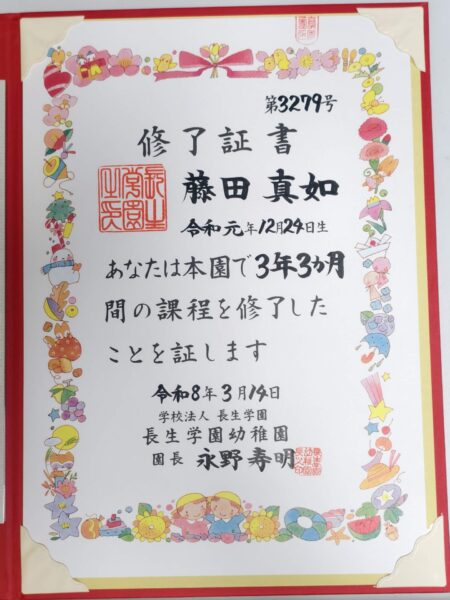 第3279号
修了証書
藤田真如
令和元年12月24日生
あなたは本園で3年3カ月
間の課程を修了した
ことを証します
令和8年3月14日
学校法人 長生学園
長生学園幼稚園
園長 永野寿明